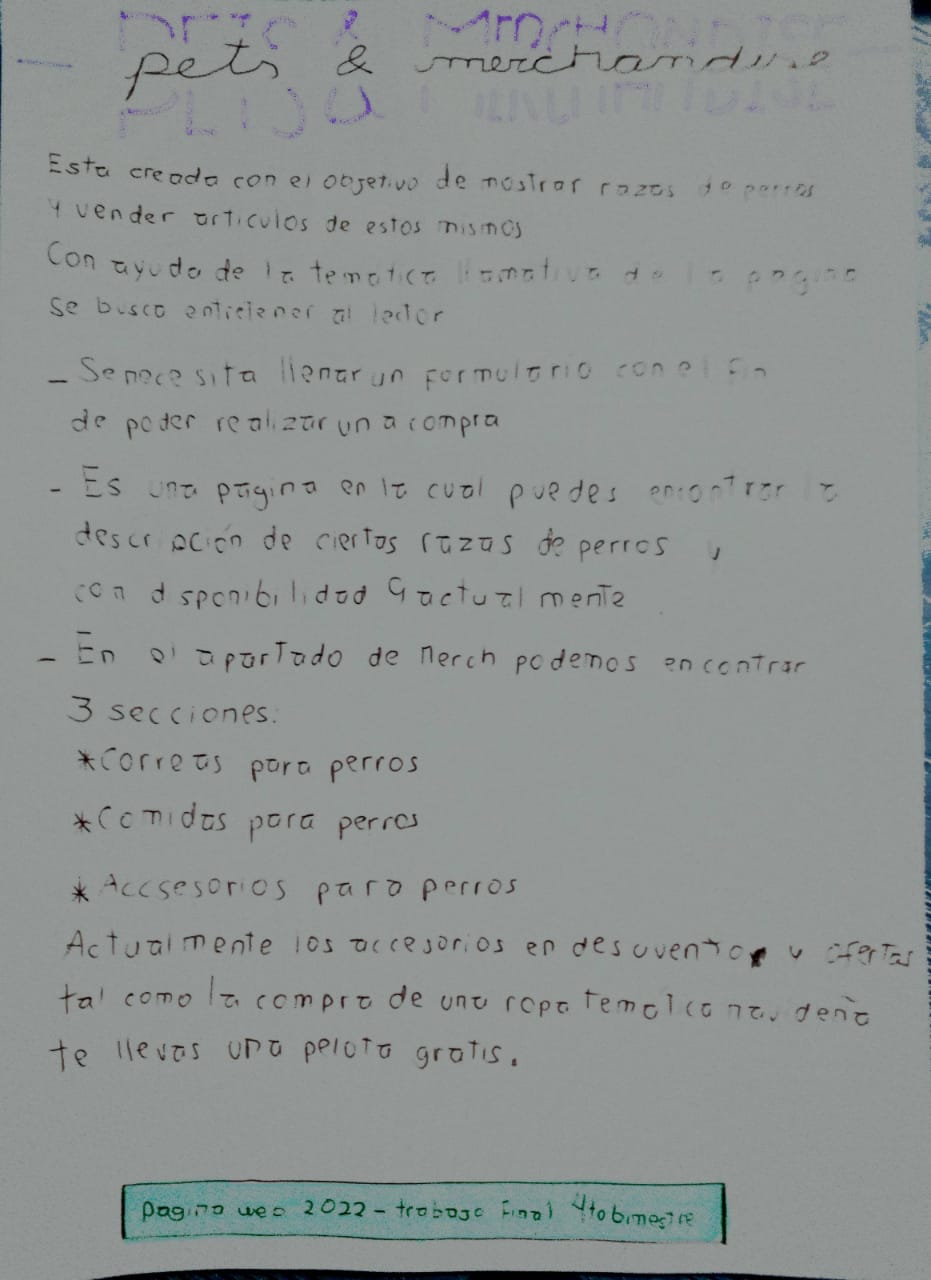 PETS & MERCHANDISE
pets & merchandise
Esta creada con el objetivo de mostrar razas de perros
y vender articulos de estos mismos
Con ayuda de la tematica llamativa de la pagina
se busca entretener al lector
- Se necesita llenar un formulario con el fin
de poder realizar una compra
- Es una pagina en la cual puedes encontrar la
descripción de ciertas razas de perros y
con disponibilidad actualmente
- En el apartado de Merch podemos encontrar
3 secciones:
*Correas para perros
*Comidas para perros
*Accsesorios para perros
Actualmente los accesorios en y ofertas
tal como la compra de una ropa tematica navideña
te llevas una pelota gratis.
pagina web 2022 - trabajo Final 4to bimestre